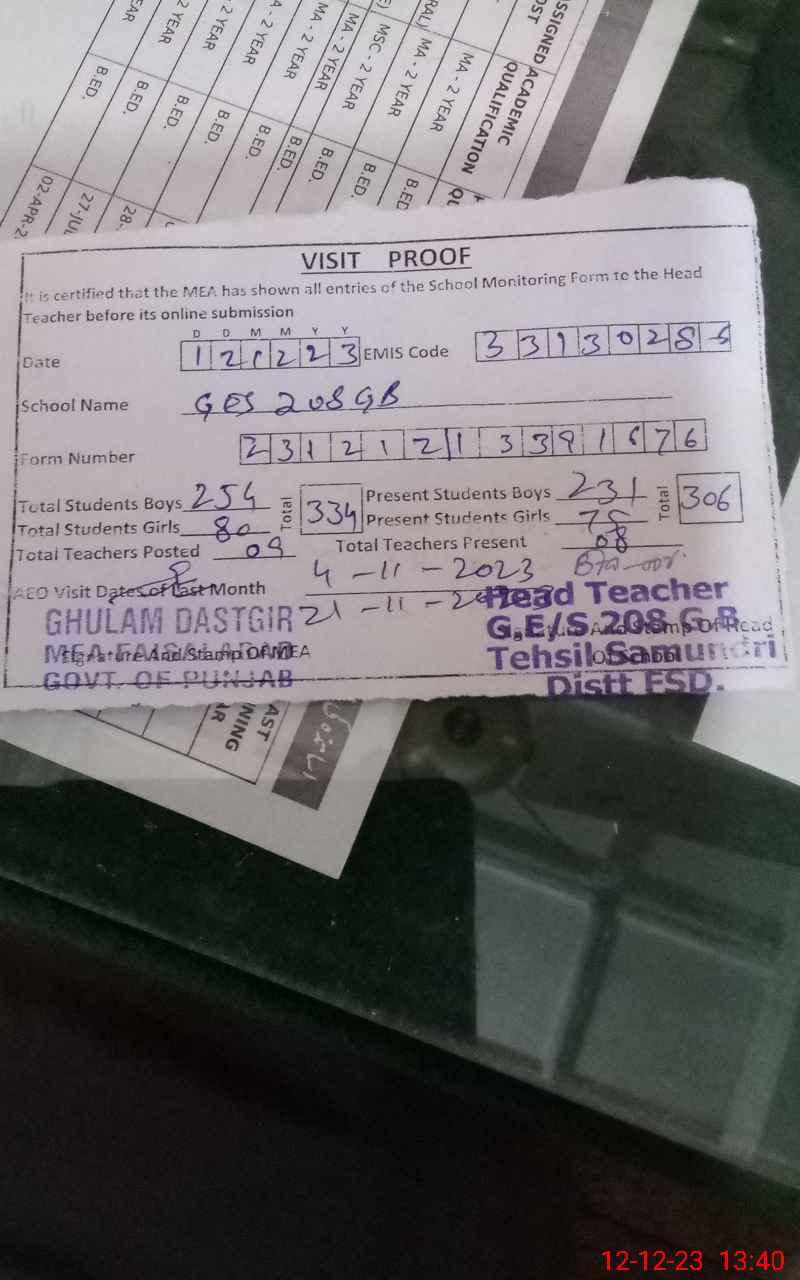 ASSIGNED ACADEMIC
QUALIFICATION
MA - 2 YEAR
MA - 2 YEAR
MSC - 2 YEAR
MA - 2 YEAR
MA - 2 YEAR
B.ED.
B.ED.
B.ED.
B.ED.
B.ED.
B.ED.
B.ED.
B.ED.
VISIT PROOF
It is certified that the MEA has shown all entries of the School Monitoring Form to the Head
Teacher before its online submission
D D M M Y Y
Date 1 2 1 2 2 3 EMIS Code 3 3 1 3 0 2 8 5
School Name GES 208 GB
Form Number 2 3 1 2 1 2 1 3 3 9 1 6 7 6
Total Students Boys 254 Total 334 Present Students Boys 231 Total 306
Total Students Girls 80 Present Students Girls 75
Total Teachers Posted 09 Total Teachers Present 08
AEO Visit Dates of Last Month 4-11-2023
21-11-2023
GHULAM DASTGIR
MEA FAISALABAD
GOVT. OF PUNJAB
Signature And Stamp Of MEA
Head Teacher
G.E/S 208 G.B
Tehsil Samundri
Distt FSD.
Signature And Stamp Of Head
Of School
12-12-23 13:40